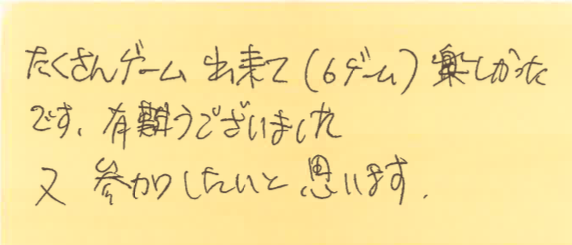 たくさんゲーム 出来て(6ゲーム)楽しかった
です、有難うございました
又 参加したいと思います.